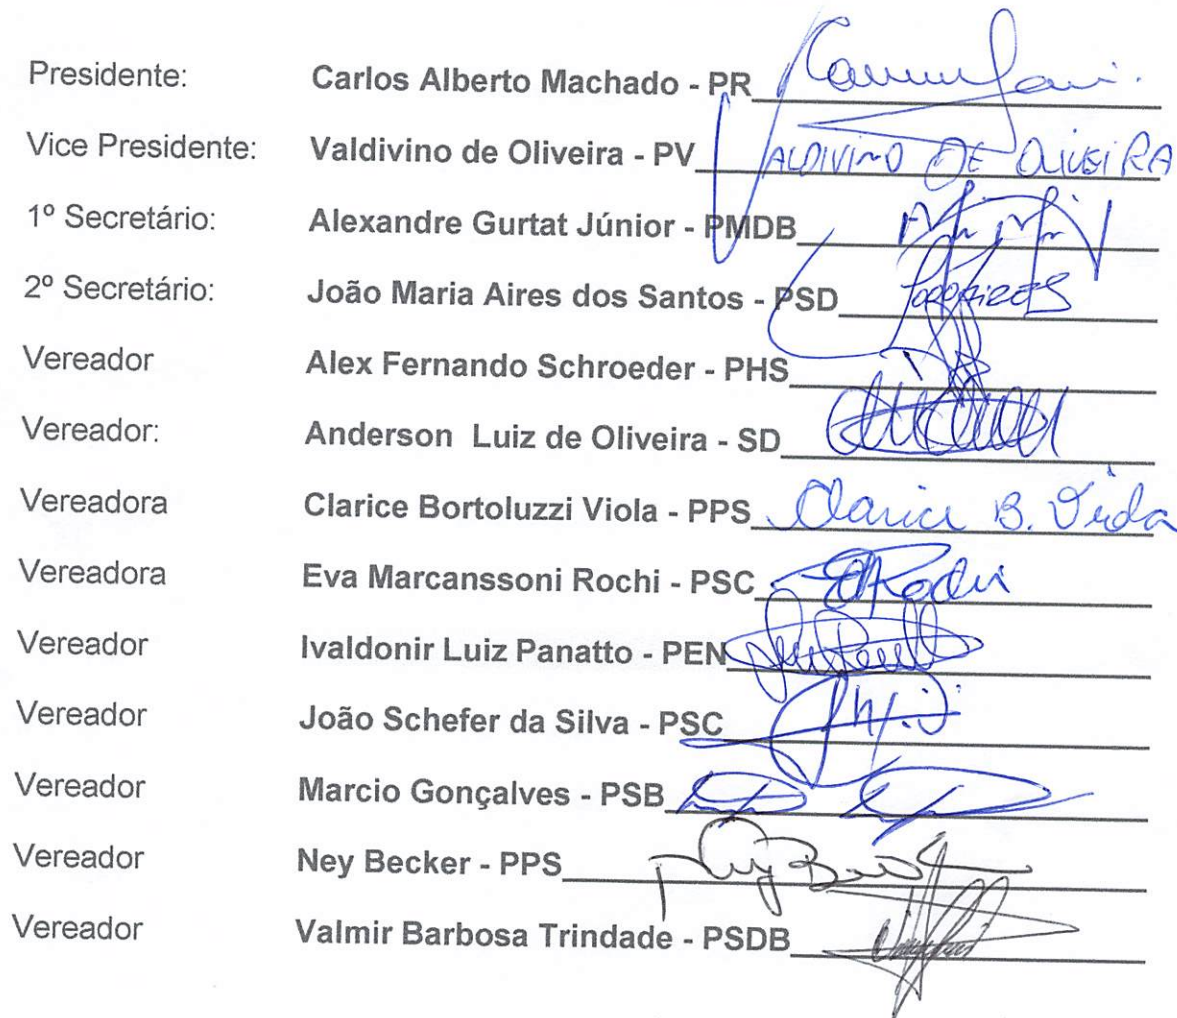 Presidente: Carlos Alberto Machado - PR
Vice Presidente: Valdivino de Oliveira - PV VALDIVINO DE OLIVEIRA
1º Secretário: Alexandre Gurtat Júnior - PMDB
2º Secretário: João Maria Aires dos Santos - PSD
Vereador Alex Fernando Schroeder - PHS
Vereador: Anderson Luiz de Oliveira - SD
Vereadora Clarice Bortoluzzi Viola - PPS Clarice B. Viola
Vereadora Eva Marcanssoni Rochi - PSC
Vereador Ivaldonir Luiz Panatto - PEN
Vereador João Schefer da Silva - PSC
Vereador Marcio Gonçalves - PSB
Vereador Ney Becker - PPS
Vereador Valmir Barbosa Trindade - PSDB